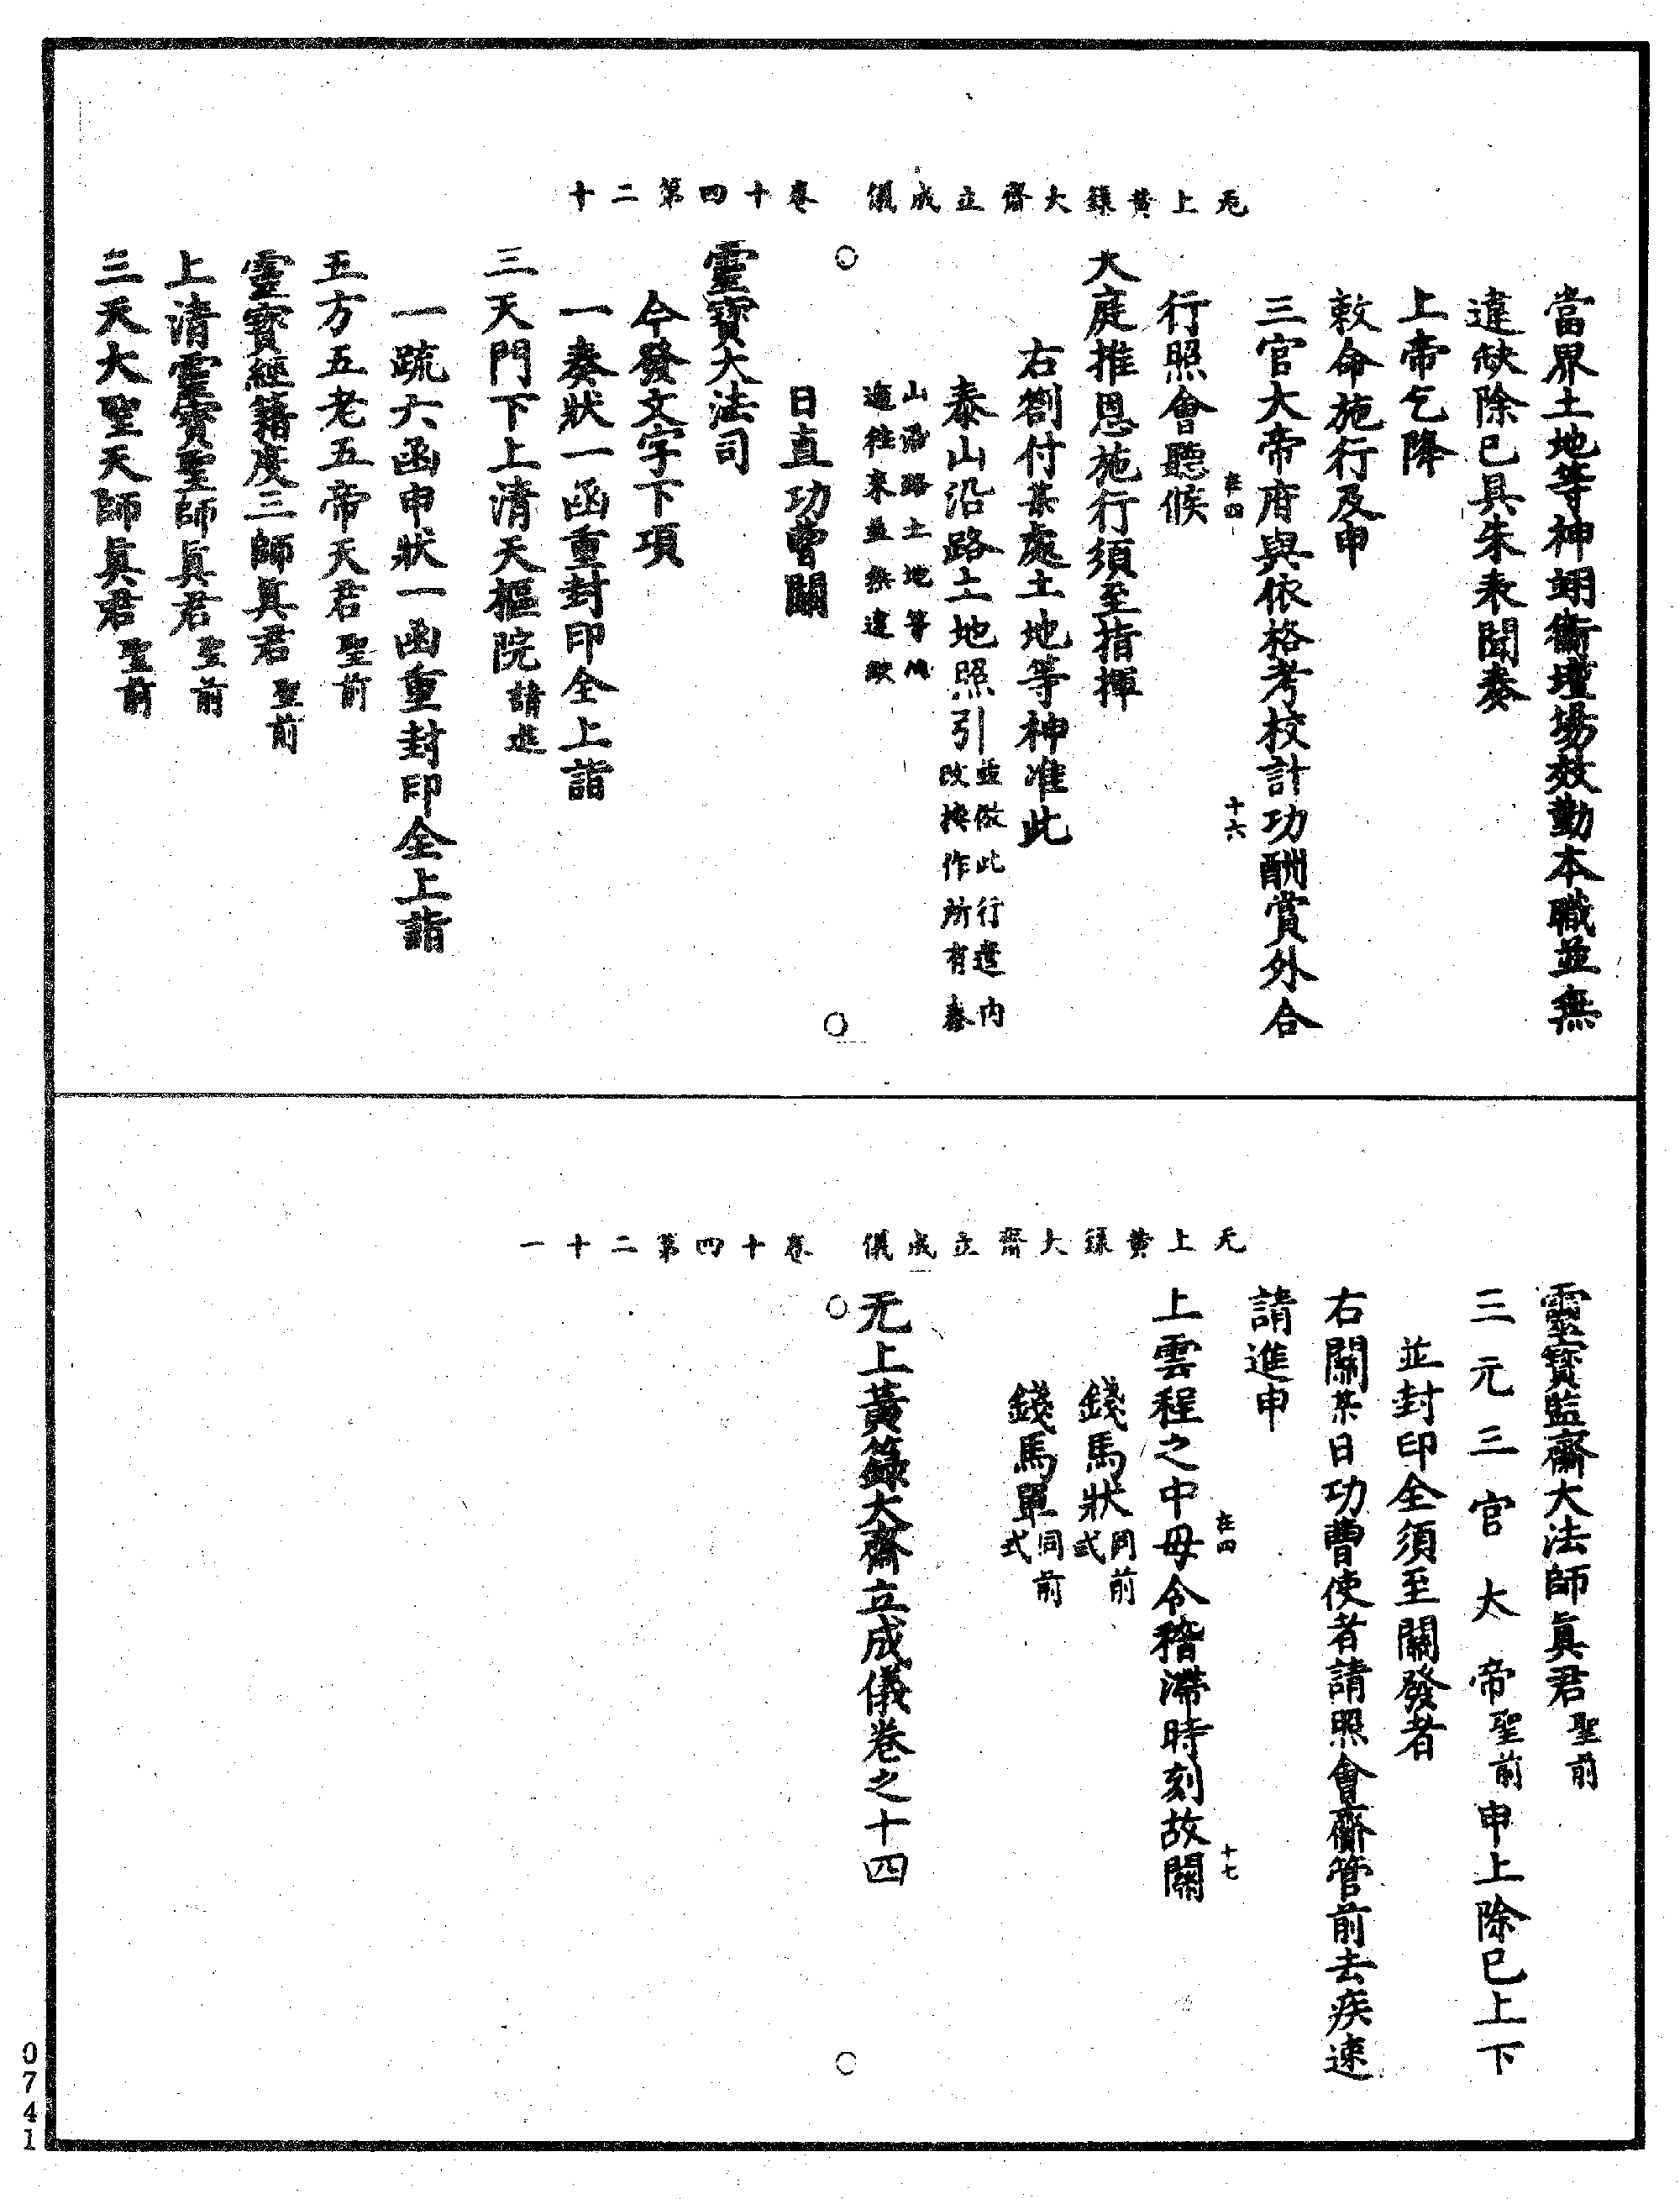 无上黃籙大齋立成儀　卷十四第二十
當界土地等神翊衞壇場效勤本職並無
違缺除已具朱表聞奏
上帝乞降
敕命施行及申
三官大帝府與依格考校計功酬賞外合
在四　十六
行照會聽候
大庭推恩施行須至指揮
右劄付某處土地等神准此
泰山沿路土地照引並倣此行遣內
改換作所有泰
山沿路土地等神
遞往來並無違缺
日直功曹關
靈寶大法司
今發文字下項
一奏狀一函重封印全上詣
三天門下上清天樞院請進
一疏六函申狀一函重封印全上詣
五方五老五帝天君聖前
靈寶經籍度三師眞君聖前
上清靈寶聖師眞君聖前
三天大聖天師眞君聖前
无上黃籙大齋立成儀　卷十四第二十一
靈寶監齋大法師眞君聖前
三元三官大帝聖前申上除已上下
並封印全須至關發者
右關某日功曹使者請照會齎管前去疾速
請進申
在四　十七
上雲程之中毋令稽滯時刻故關
錢馬狀同前
式
錢馬單同前
式
无上黃籙大齋立成儀卷之十四
0741